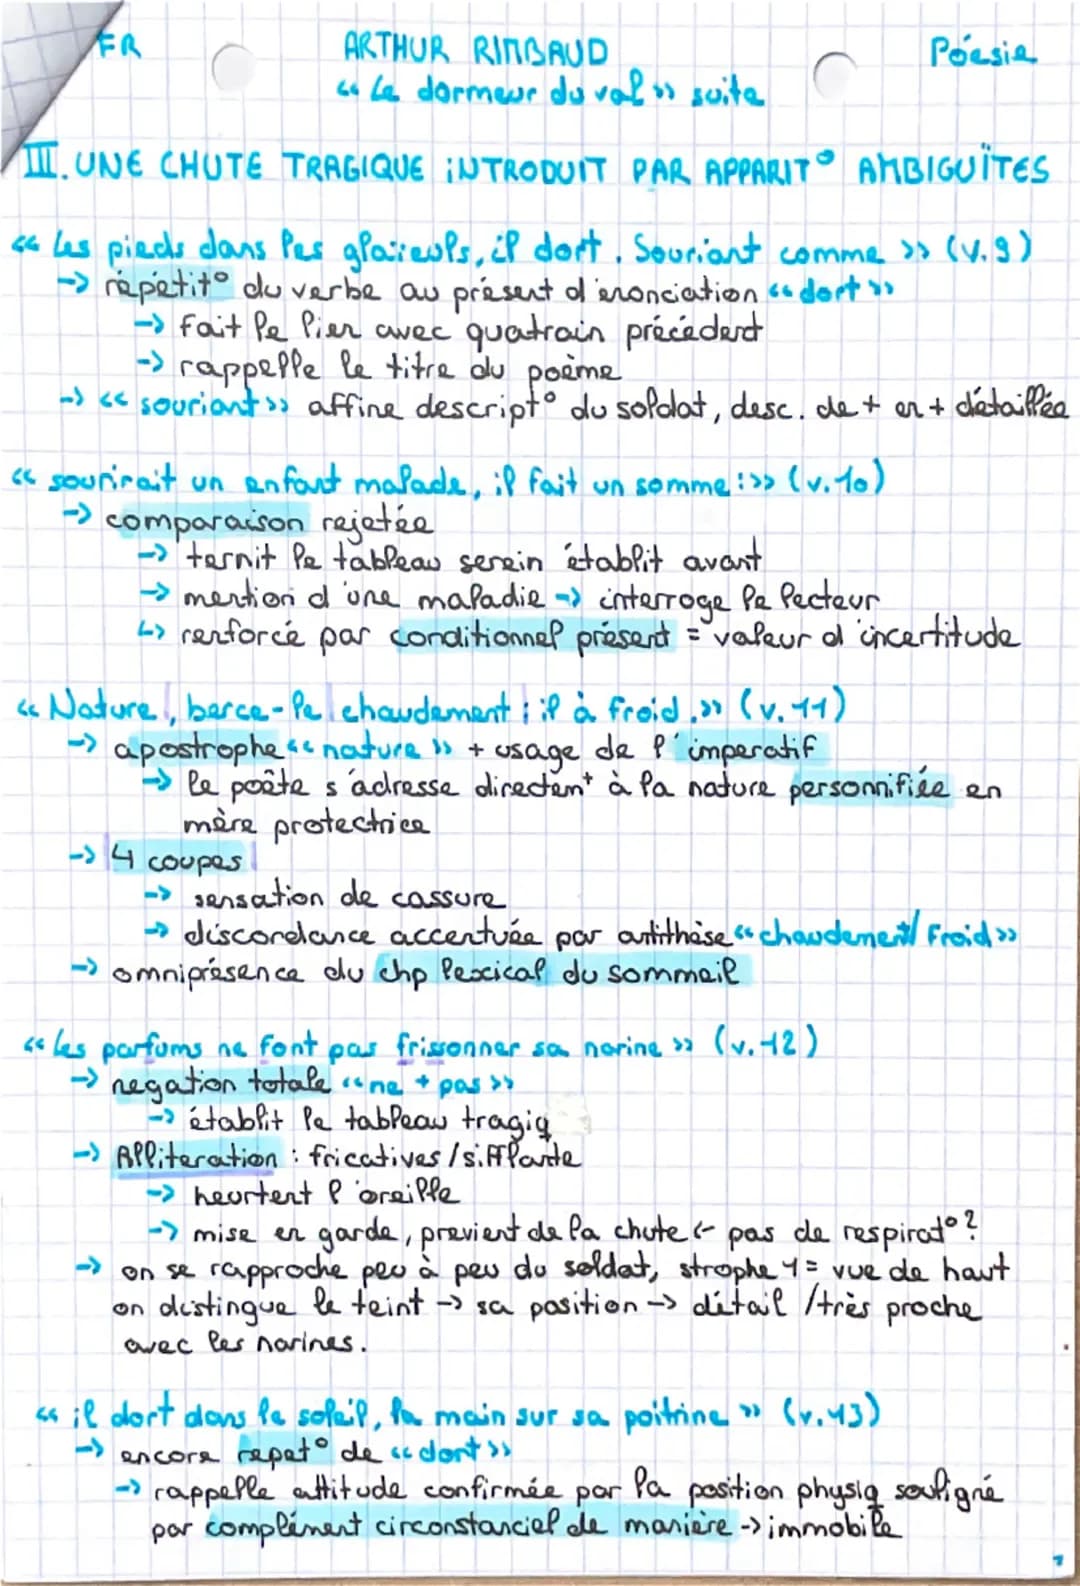 FR
ARTHUR RIMBAUD
Poésie
« Le dormeur du val » suite
III. UNE CHUTE TRAGIQUE INTRODUIT PAR APPARIT° AMBIGUÏTES
« Les pieds dans les glaïeuls, il dort. Souriant comme » (v.9)
-> répétit° du verbe au présent d'énonciation « dort »
-> fait le lien avec quatrain précédent
-> rappelle le titre du poème
-> « souriant » affine descript° du soldat, desc. de + en + détaillée
« sourirait un enfant malade, il fait un somme : » (v.10)
-> comparaison rejetée
-> ternit le tableau serein établit avant
-> mention d'une maladie -> interroge le lecteur
↳ renforcé par conditionnel présent = valeur d'incertitude
« Nature, berce-le chaudement ; il à froid. » (v.11)
-> apostrophe « nature » + usage de l'imperatif
-> le poète s'adresse directemt à la nature personnifiée en
mère protectrice
-> 4 coupes
-> sensation de cassure
-> discordance accentuée par antithèse « chaudement/ Froid »
-> omniprésence du chp lexical du sommeil
« les parfums ne font pas frissonner sa narine » (v.12)
-> negation totale « ne + pas »
-> établit le tableau tragiq
-> Alliteration : fricatives/sifflante
-> heurtent l'oreille
-> mise en garde, previent de la chute <- pas de respirat° ?
-> on se rapproche peu à peu du soldat, strophe 1 = vue de haut
on distingue le teint -> sa position -> détail / très proche
avec les narines.
« il dort dans le soleil, la main sur sa poitrine » (v.13)
-> encore repet° de « dort »
-> rappelle attitude confirmée par la position physiq souligné
par complément circonstanciel de manière -> immobile